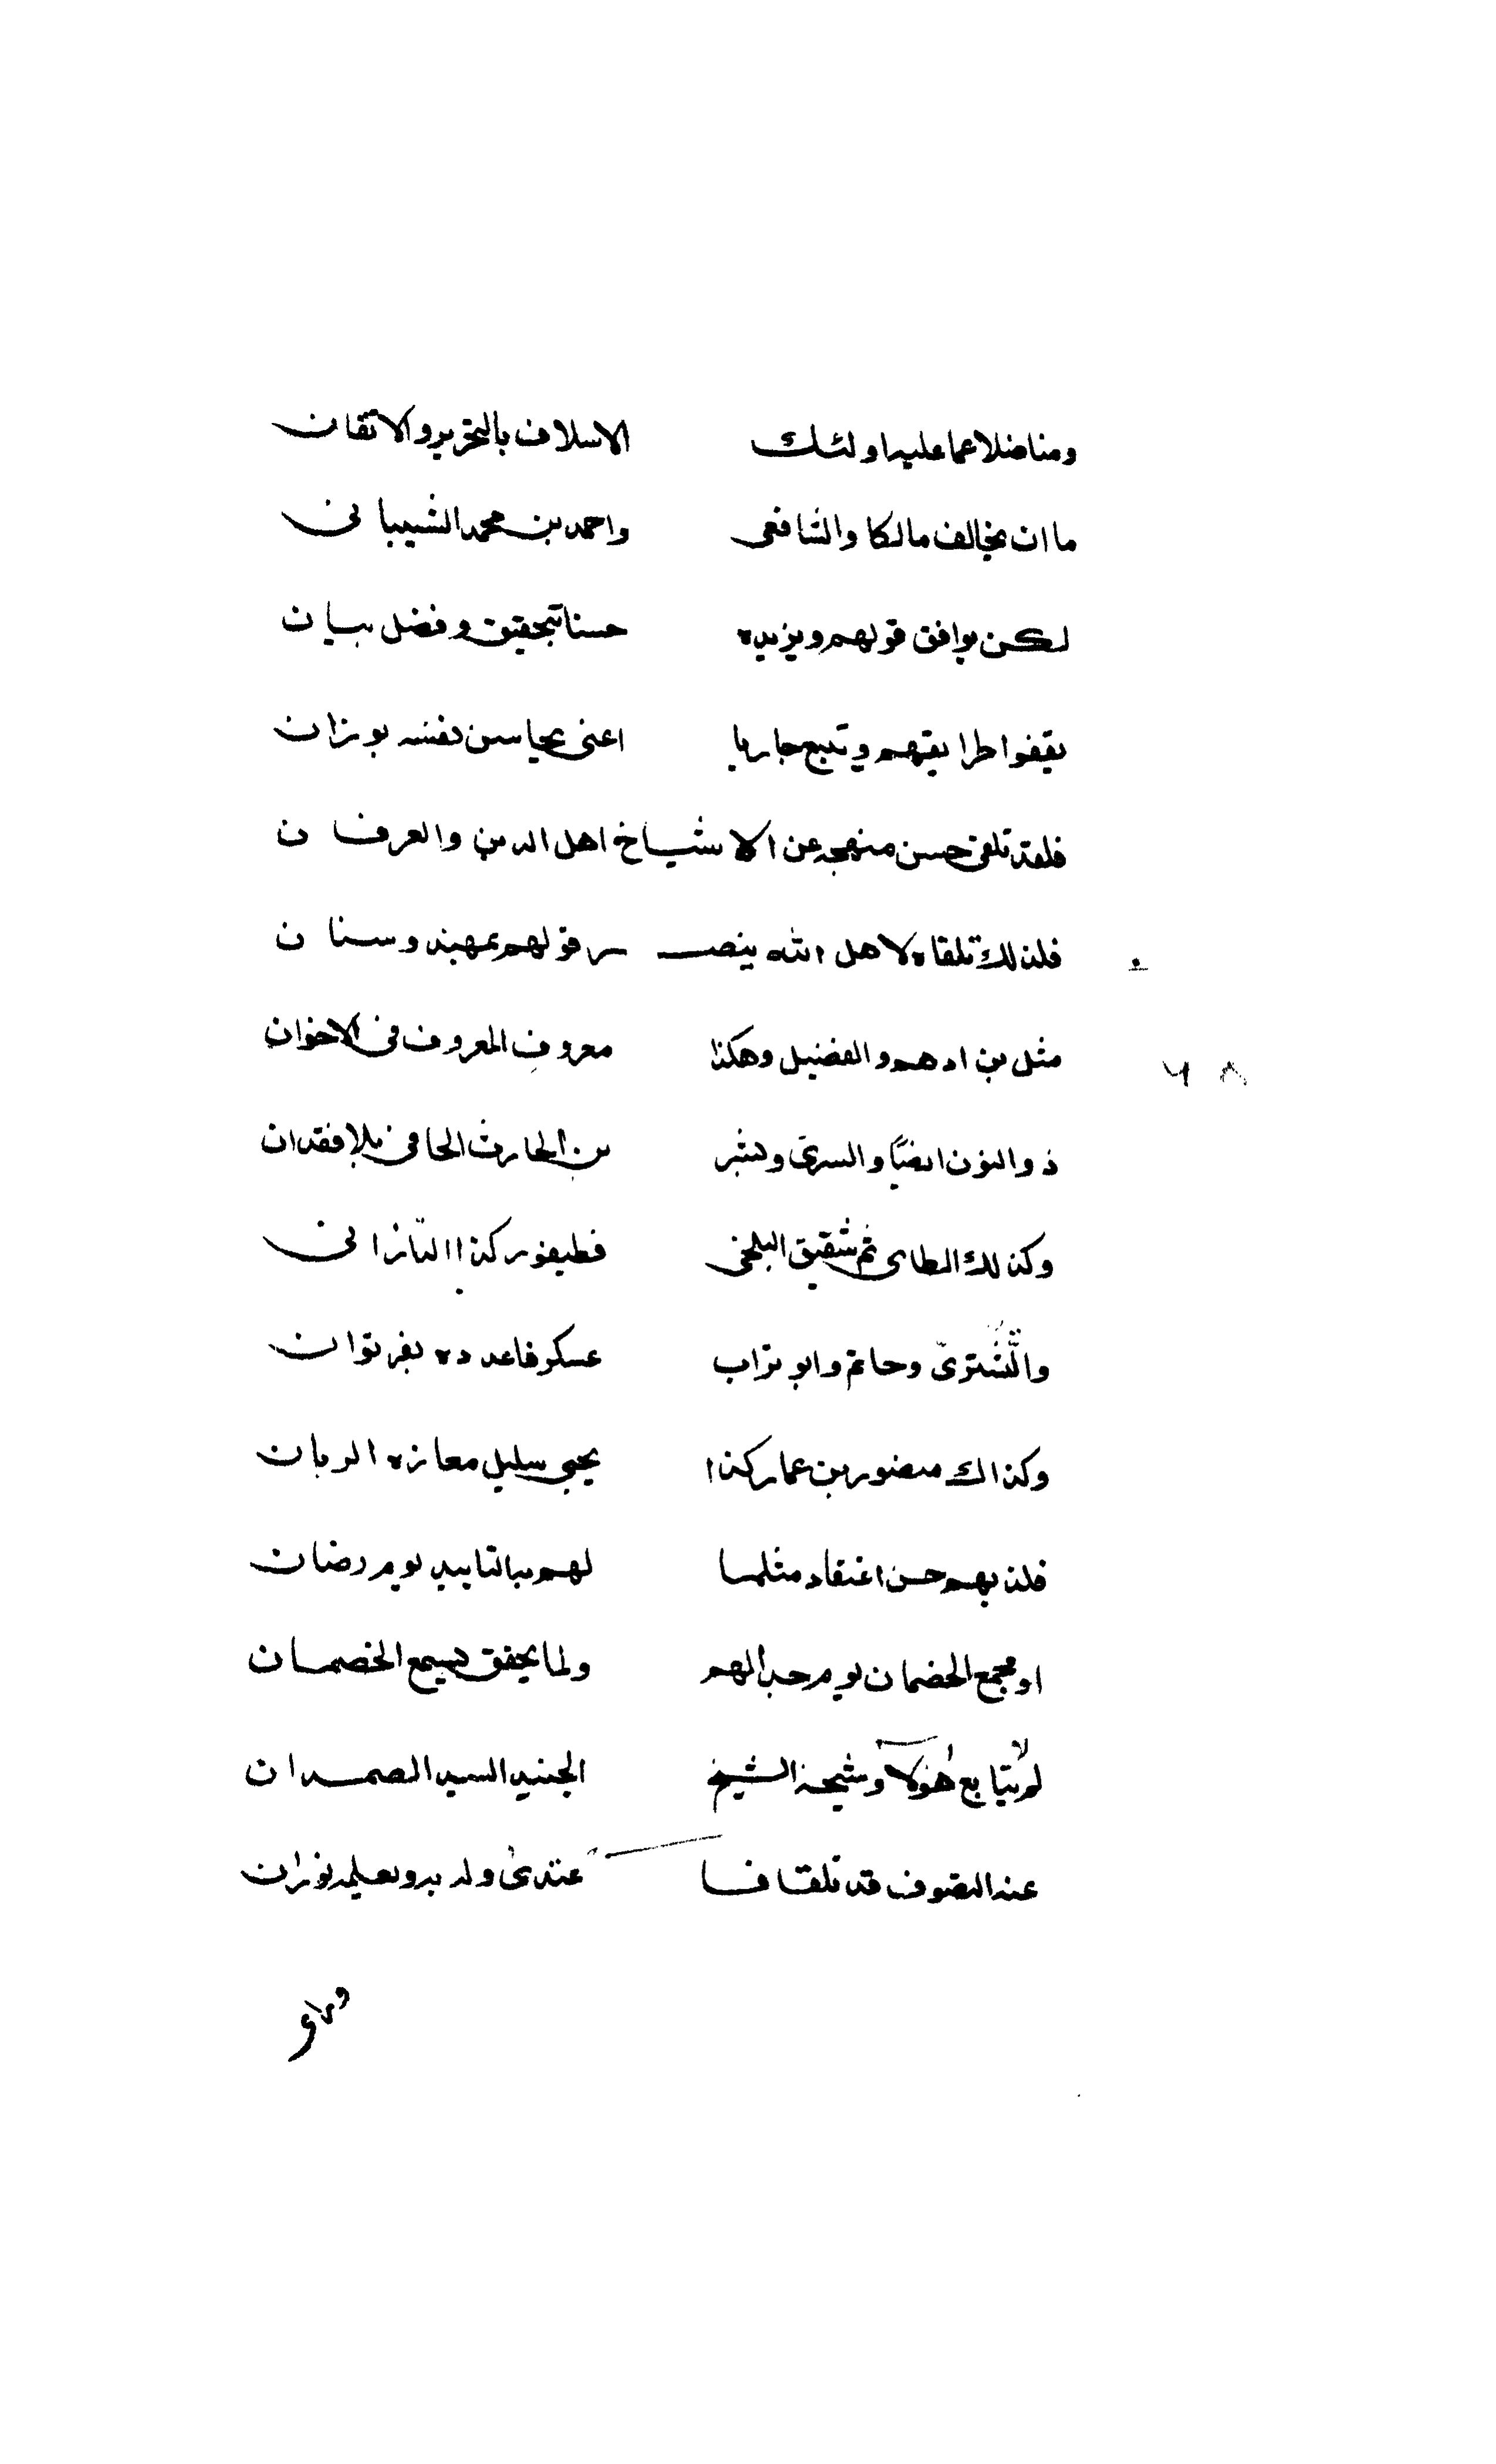 ومناضلا عما عليه اولئك الاسلاف بالتحرير والاتقان
ما ان يخالف مالكا والشافعى واحمد بن محمد الشيبانى
لكن يوافق قولهم ويزيده حسنا تبحقيق وفضل بيان
يقفوا طرايقهم ويتبع حاربا اعنى محاسن نفسه بوزان
فلقد تلقى حسن منهجه عن الاشياخ اهل الدين والعرفان
فلذلك تلقاه لاهل الله ينصر قولهم بمهند وسنان
مثل بن ادهم والفضيل وهكذا معروف المعروف فى الاخوان
٦٨
ذو النون ايضًا والسرى وبشر بن الحارث الحافى بلا فقدان
وكذلك الطاى ثم شقيق البلخى فطيفور كذا الدارانى
والتسترى وحاتم وابو تراب عسكر فاعدده بغير توان
وكذاك منصور بن عمار كذا يحيى سليل معاذه الربان
فله بهم حسن اعتقاد مثلما لهم بالتاييد يوم رضان
او مجمع الخصمان يوم جدالهم ولما يحقق يسمع الخصمان
لم لا يتابع هؤلا وشيخه الشيخ الجنيد السيد الصمدان
عنه التصوف قد تلقا فا عتدى وله به وبعلمه نوران